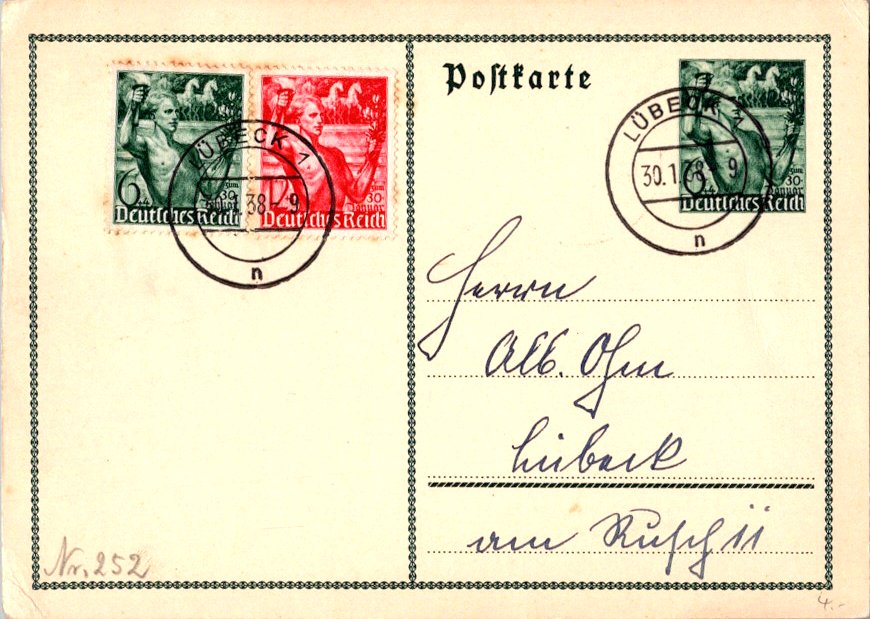 Postkarte
6+4
zum
30.
Januar
Deutsches Reich
12
zum
30.
Januar
Deutsches Reich
LÜBECK 1
1.38 - 9
n
6+4
Deutsches Reich
LÜBECK 1
30.1.38 - 9
n
Herrn
Alb. Ohm
Lübeck
am
Nr. 252
4.-